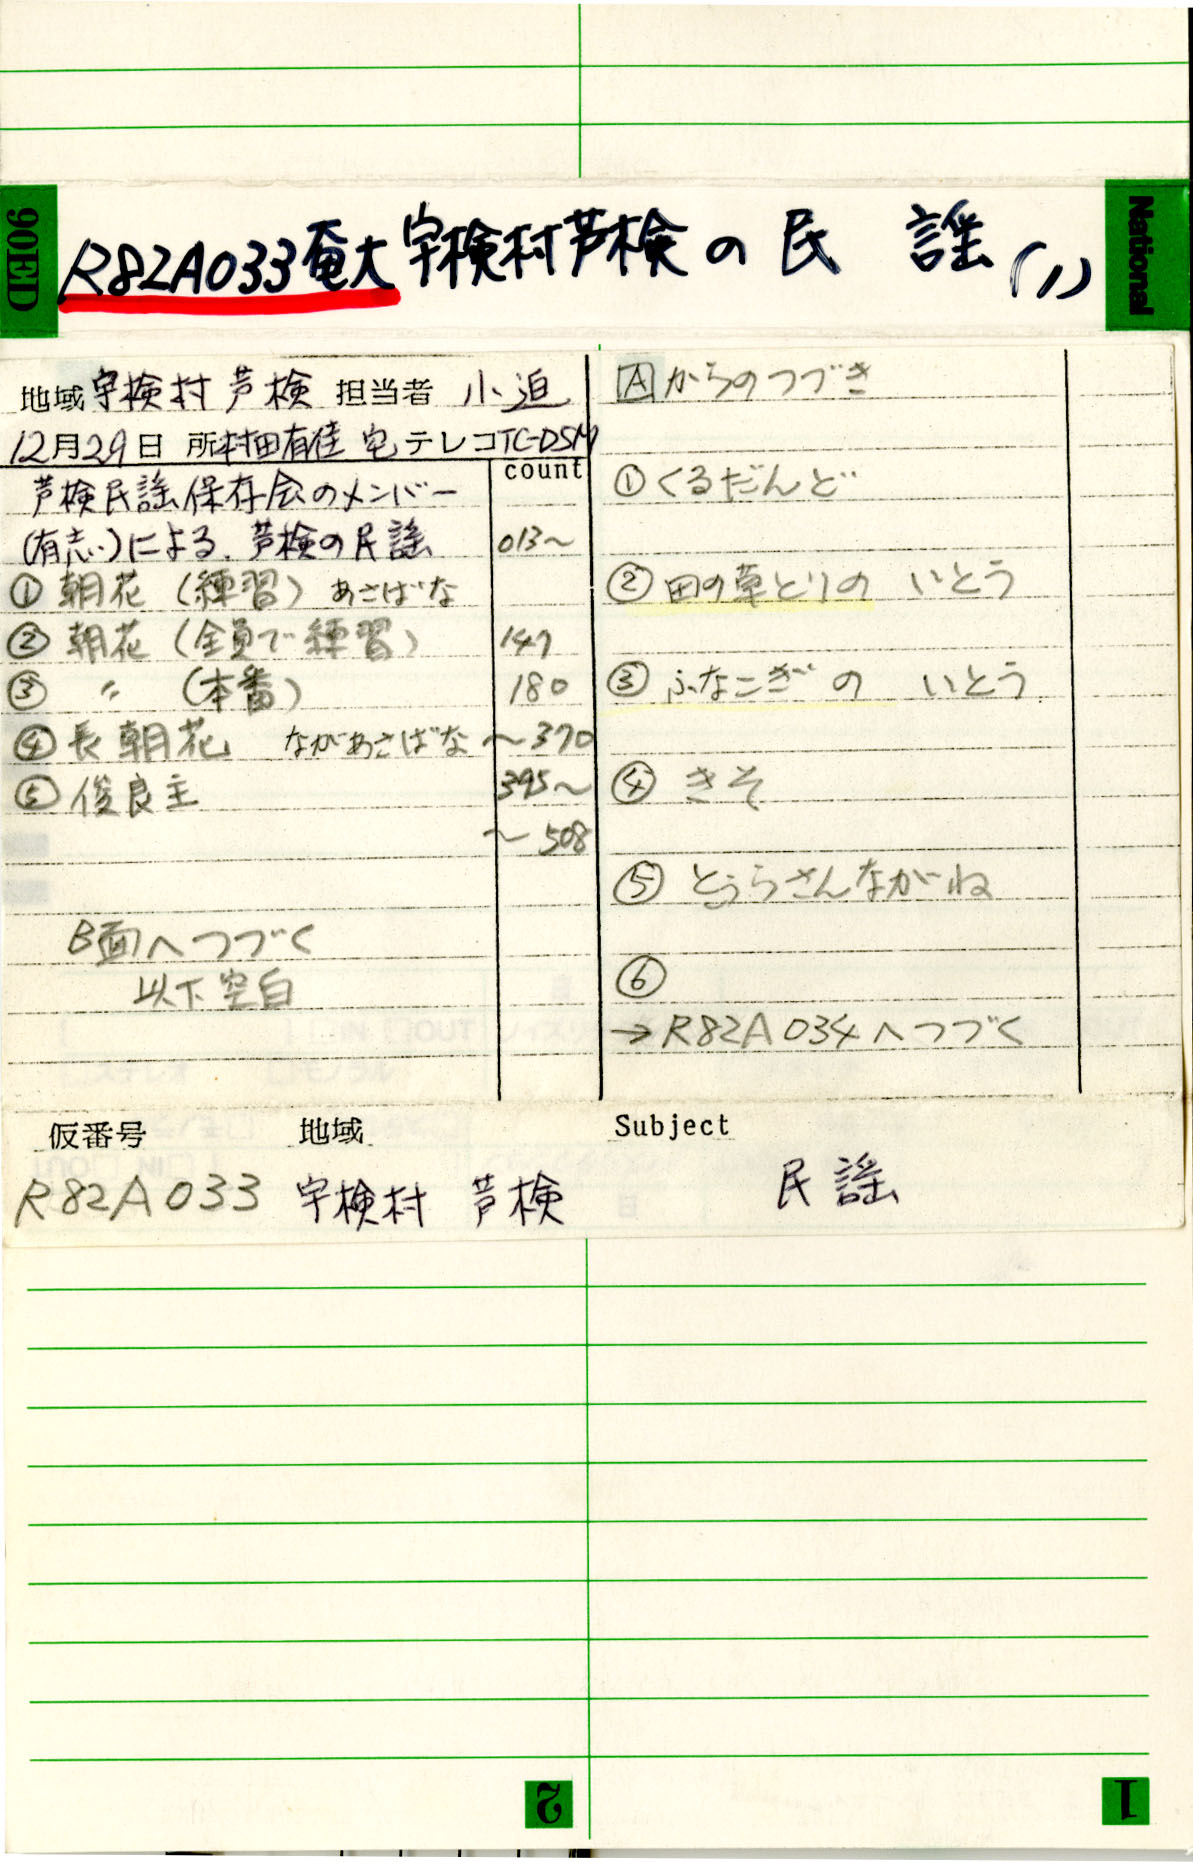 90ED
R82A033奄大宇検村芦検の民 謡(1)
National
地域 宇検村 芦検 担当者 小迫
12月29日 所村田有佳宅テレコTC-D5M
count
芦検民謡保存会のメンバー
(有志)による、芦検の民謡 013~
① 朝花(練習) あさばな
② 朝花(全員で練習) 147
③ 〃 (本番) 180
④ 長朝花 ながあさばな ~370
⑤ 俊良主 395~
~508
B面へつづく
以下空白
Aからのつづき
① くるだんど
② 田の草とりの いとう
③ ふなこぎの いとう
④ きそ
⑤ とうらさんながね
⑥
→R82A034へつづく
仮番号 地域 Subject
R82A033 宇検村 芦検 民謡
2
1